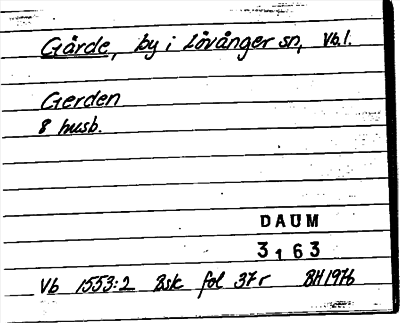 Gärde, by i Lövånger sn, Vb.l.
Gerden
8 husb.
DAUM
3163
Vb 1553:2 Bsk fol 37r BH 1976